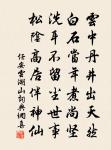 雲中丹井出天然
白石尚堅
洗耳不留塵世事
松陰高居伴神仙
任安雲湖山詞典網